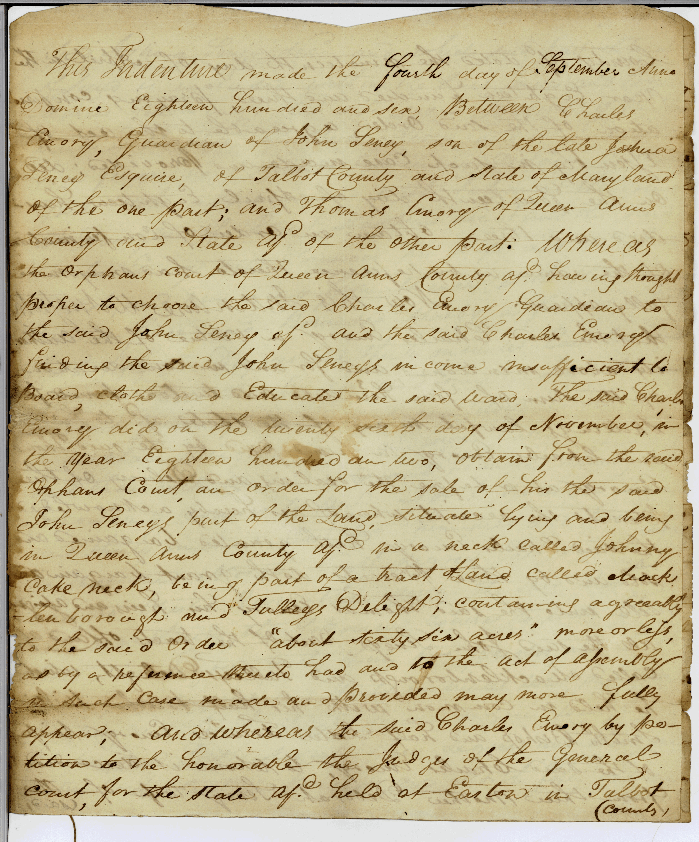 This Indenture made the fourth day of September Anno
Domine Eighteen hundred and six, Between Charles
Emory, Guardian of John Seney, son of the late Joshua
Seney Esquire, of Talbot County and State of Maryland
of the one part; and Thomas Emory of Queen Anns
County and State afd. of the other part: Whereas
the Orphans Court of Queen Anns County afd. having thought
proper to choose the said Charles Emory Guardian to
the said John Seney afd and the said Charles Emory
finding the said John Seneys income insufficient to
board, clothe and Educate the said ward The said Charles
Emory did on the twenty sixth day of November, in
the year Eighteen hundred an two, obtain from the said
Orphans Court, an order for the sale of his the said
John Seneys part of the Land, situate lying and being
in Queen Anns County afd. in a neck called Johnny
Cake neck, being part of a tract of Land called Mack
-lenborough and Tulleys Delight; containing agreeably
to the said Order "about sixty six acres" more or less,
as by a refurence thereto had and to the act of assembly
in such case made and provided may more fully
appear; And whereas the said Charles Emory by pe-
tition to the honorable the Judges of the General
court, for the State afd. held at Easton in Talbot
(County,